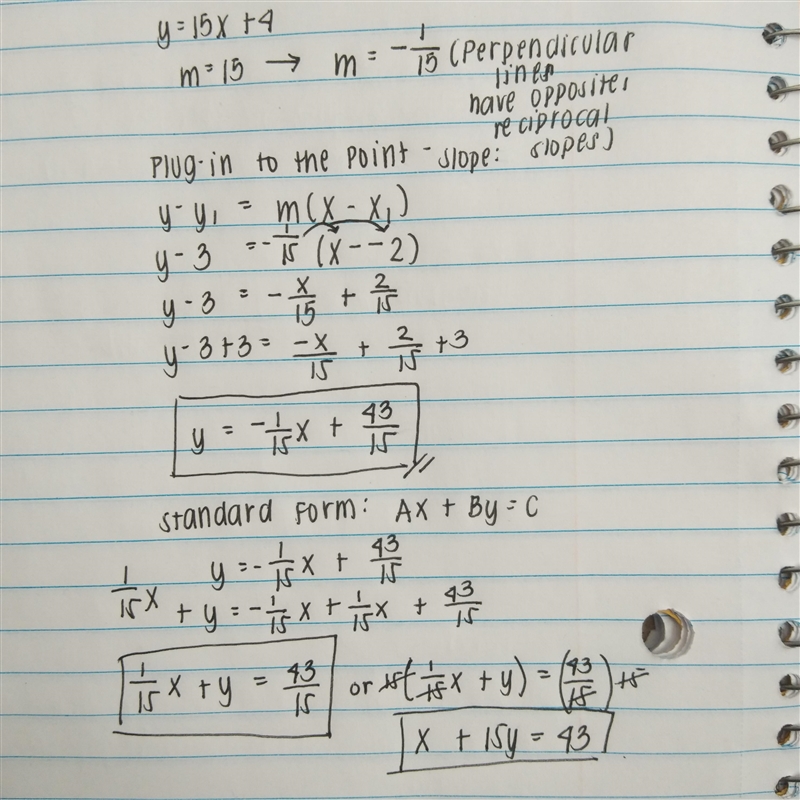 y = 15x + 4
m = 15 → m = -1/15 (Perpendicular
lines
have opposite,
reciprocal
slopes)
Plug-in to the point - slope:
y - y₁ = m(x - x₁)
y - 3 = -1/15 (x - -2)
y - 3 = -x/15 + 2/15
y - 3 + 3 = -x/15 + 2/15 + 3
y = -1/15x + 43/15
Standard Form: Ax + By = C
y = -1/15x + 43/15
1/15x + y = -1/15x + 1/15x + 43/15
1/15x + y = 43/15 or 15(1/15x + y) = (43/15)15
x + 15y = 43